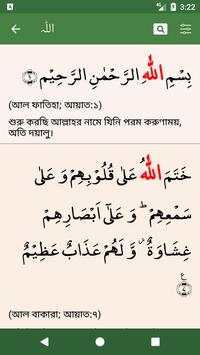 3:22
اللّٰہ
بِسْمِ اللّٰهِ الرَّحْمٰنِ الرَّحِیْمِ
(আল ফাতিহা; আয়াত:১)
শুরু করছি আল্লাহর নামে যিনি পরম করুণাময়,
অতি দয়ালু।
خَتَمَ اللّٰهُ عَلٰی قُلُوْبِهِمْ وَ عَلٰی
سَمْعِهِمْ ؕ وَ عَلٰۤی اَبْصَارِهِمْ
غِشَاوَةٌ ؗ وَّ لَهُمْ عَذَابٌ عَظِیْمٌ
(আল বাকারা; আয়াত:৭)